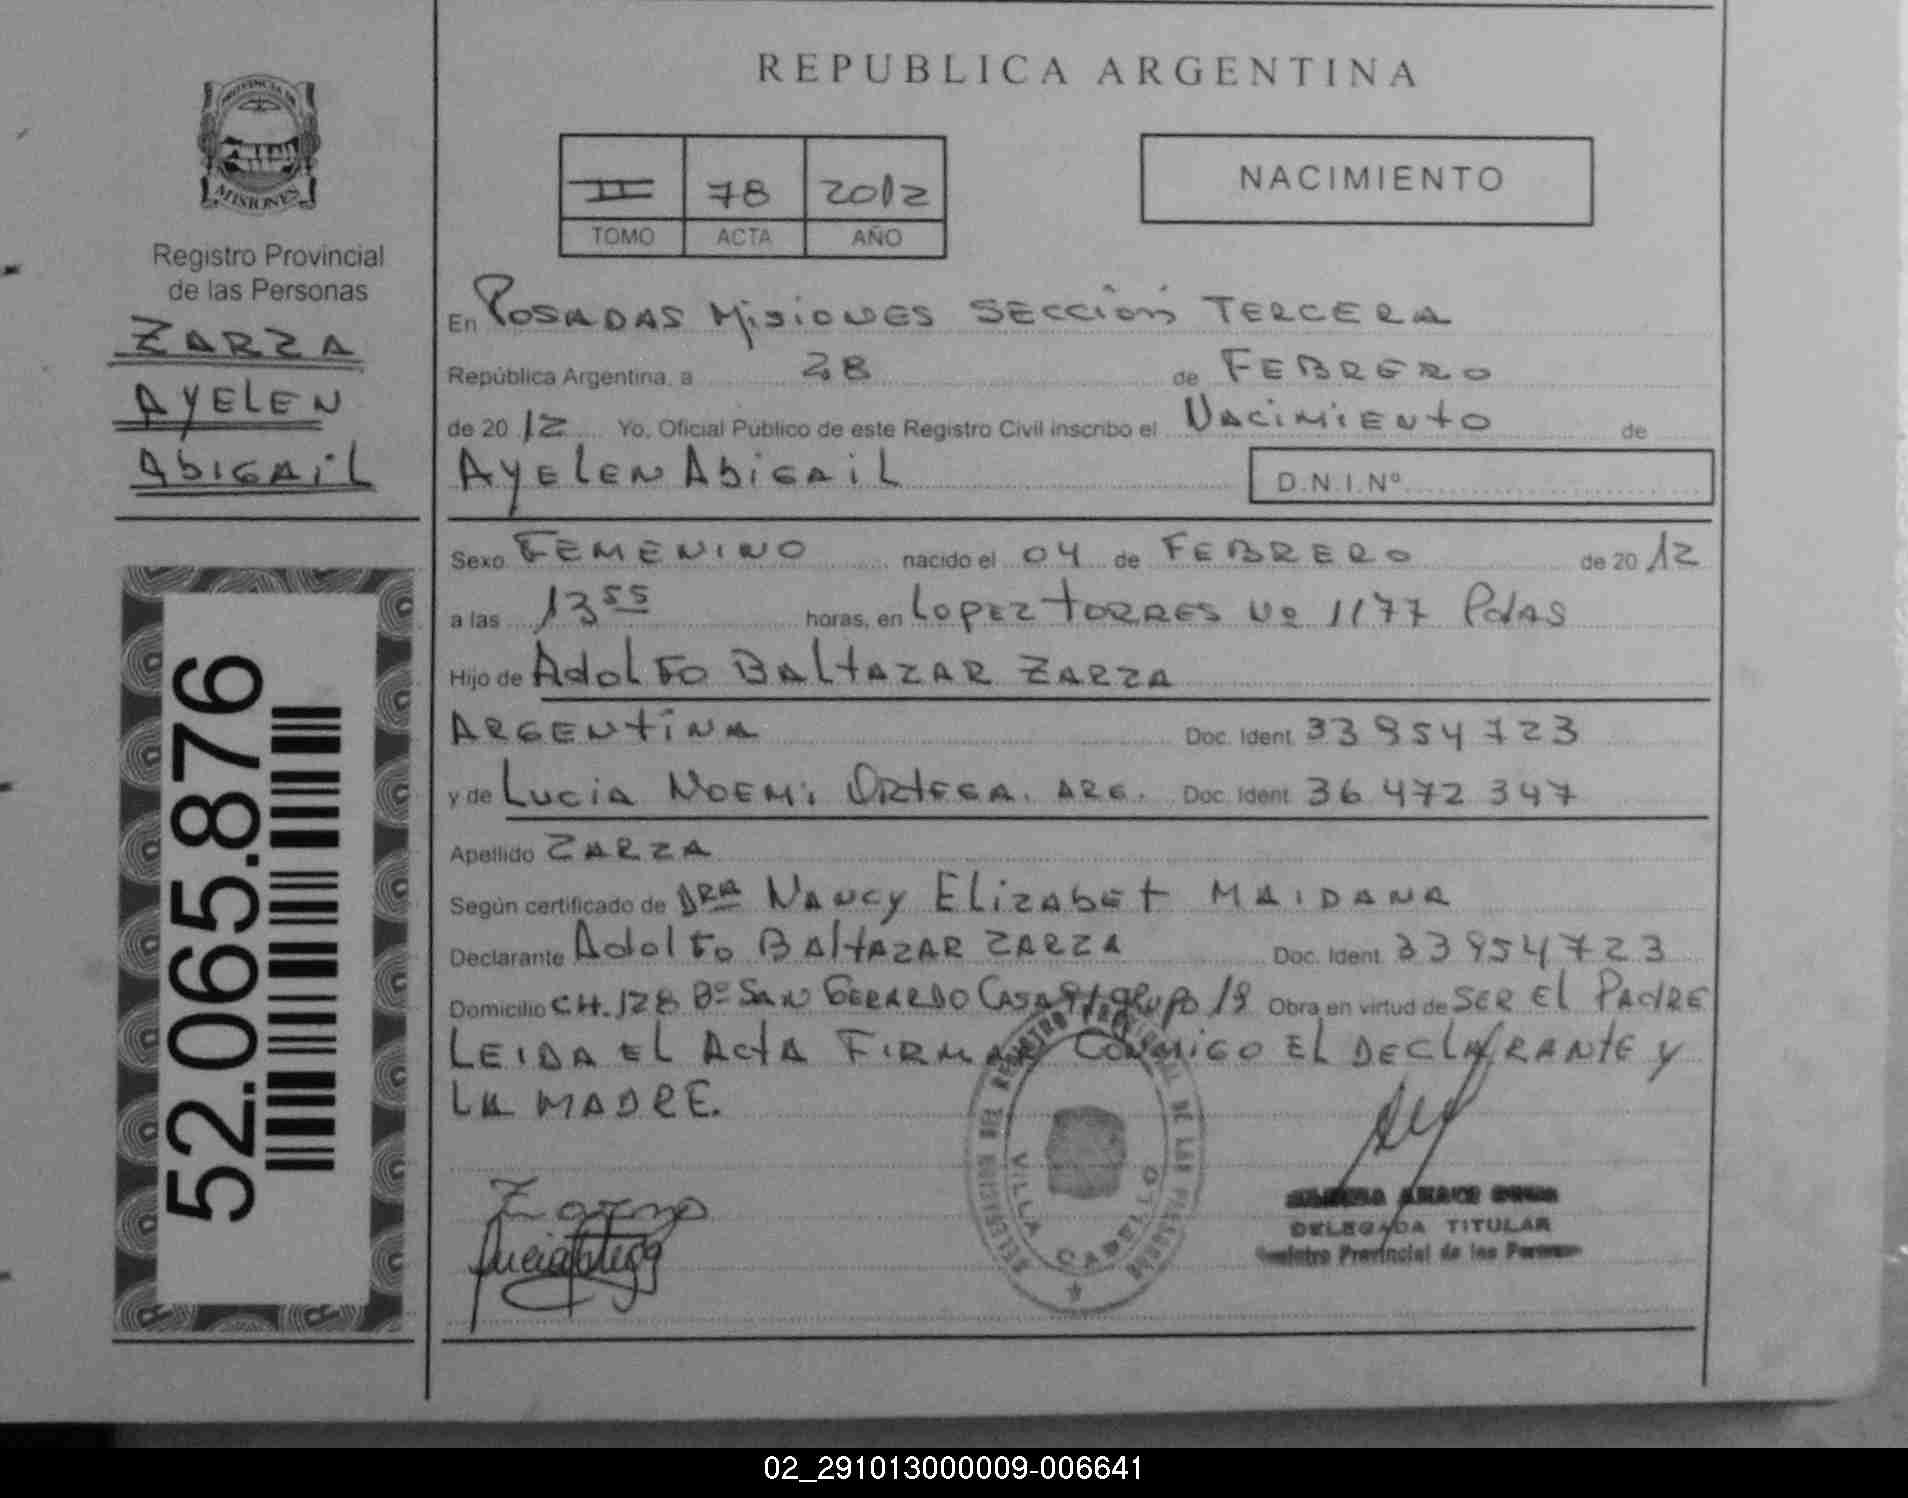 REPUBLICA ARGENTINA
PROVINCIA DE
MISIONES
Registro Provincial
de las Personas
ZARZA
AYELEN
ABIGAIL
52.065.876
II 78 2012
TOMO ACTA AÑO
NACIMIENTO
En POSADAS MISIONES SECCIÓN TERCERA
República Argentina, a 28 de FEBRERO
de 2012 Yo, Oficial Público de este Registro Civil inscribo el NACIMIENTO de
AYELEN ABIGAIL D.N.I.Nº
Sexo FEMENINO nacido el 04 de FEBRERO de 2012
a las 13 55 horas, en LOPEZ TORRES Nº 1177 Pdas
Hijo de ADOLFO BALTAZAR ZARZA
ARGENTINA Doc. Ident. 33954723
y de LUCIA NOEMI ORTEGA. ARG. Doc. Ident. 36472347
Apellido ZARZA
Según certificado de DRA NANCY ELIZABET MAIDANA
Declarante ADOLFO BALTAZAR ZARZA Doc. Ident. 33954723
Domicilio CH. 128 Bº SAN GERARDO CASA grupo 19 Obra en virtud de SER EL PADRE
LEIDA EL ACTA FIRMAN CONMIGO EL DECLARANTE Y
LA MADRE.
REGISTRO PROVINCIAL DE LAS PERSONAS
VILLA CABELLO
Zarza
Lucia Ortega
DELEGADA TITULAR
Registro Provincial de las Personas
02_291013000009-006641